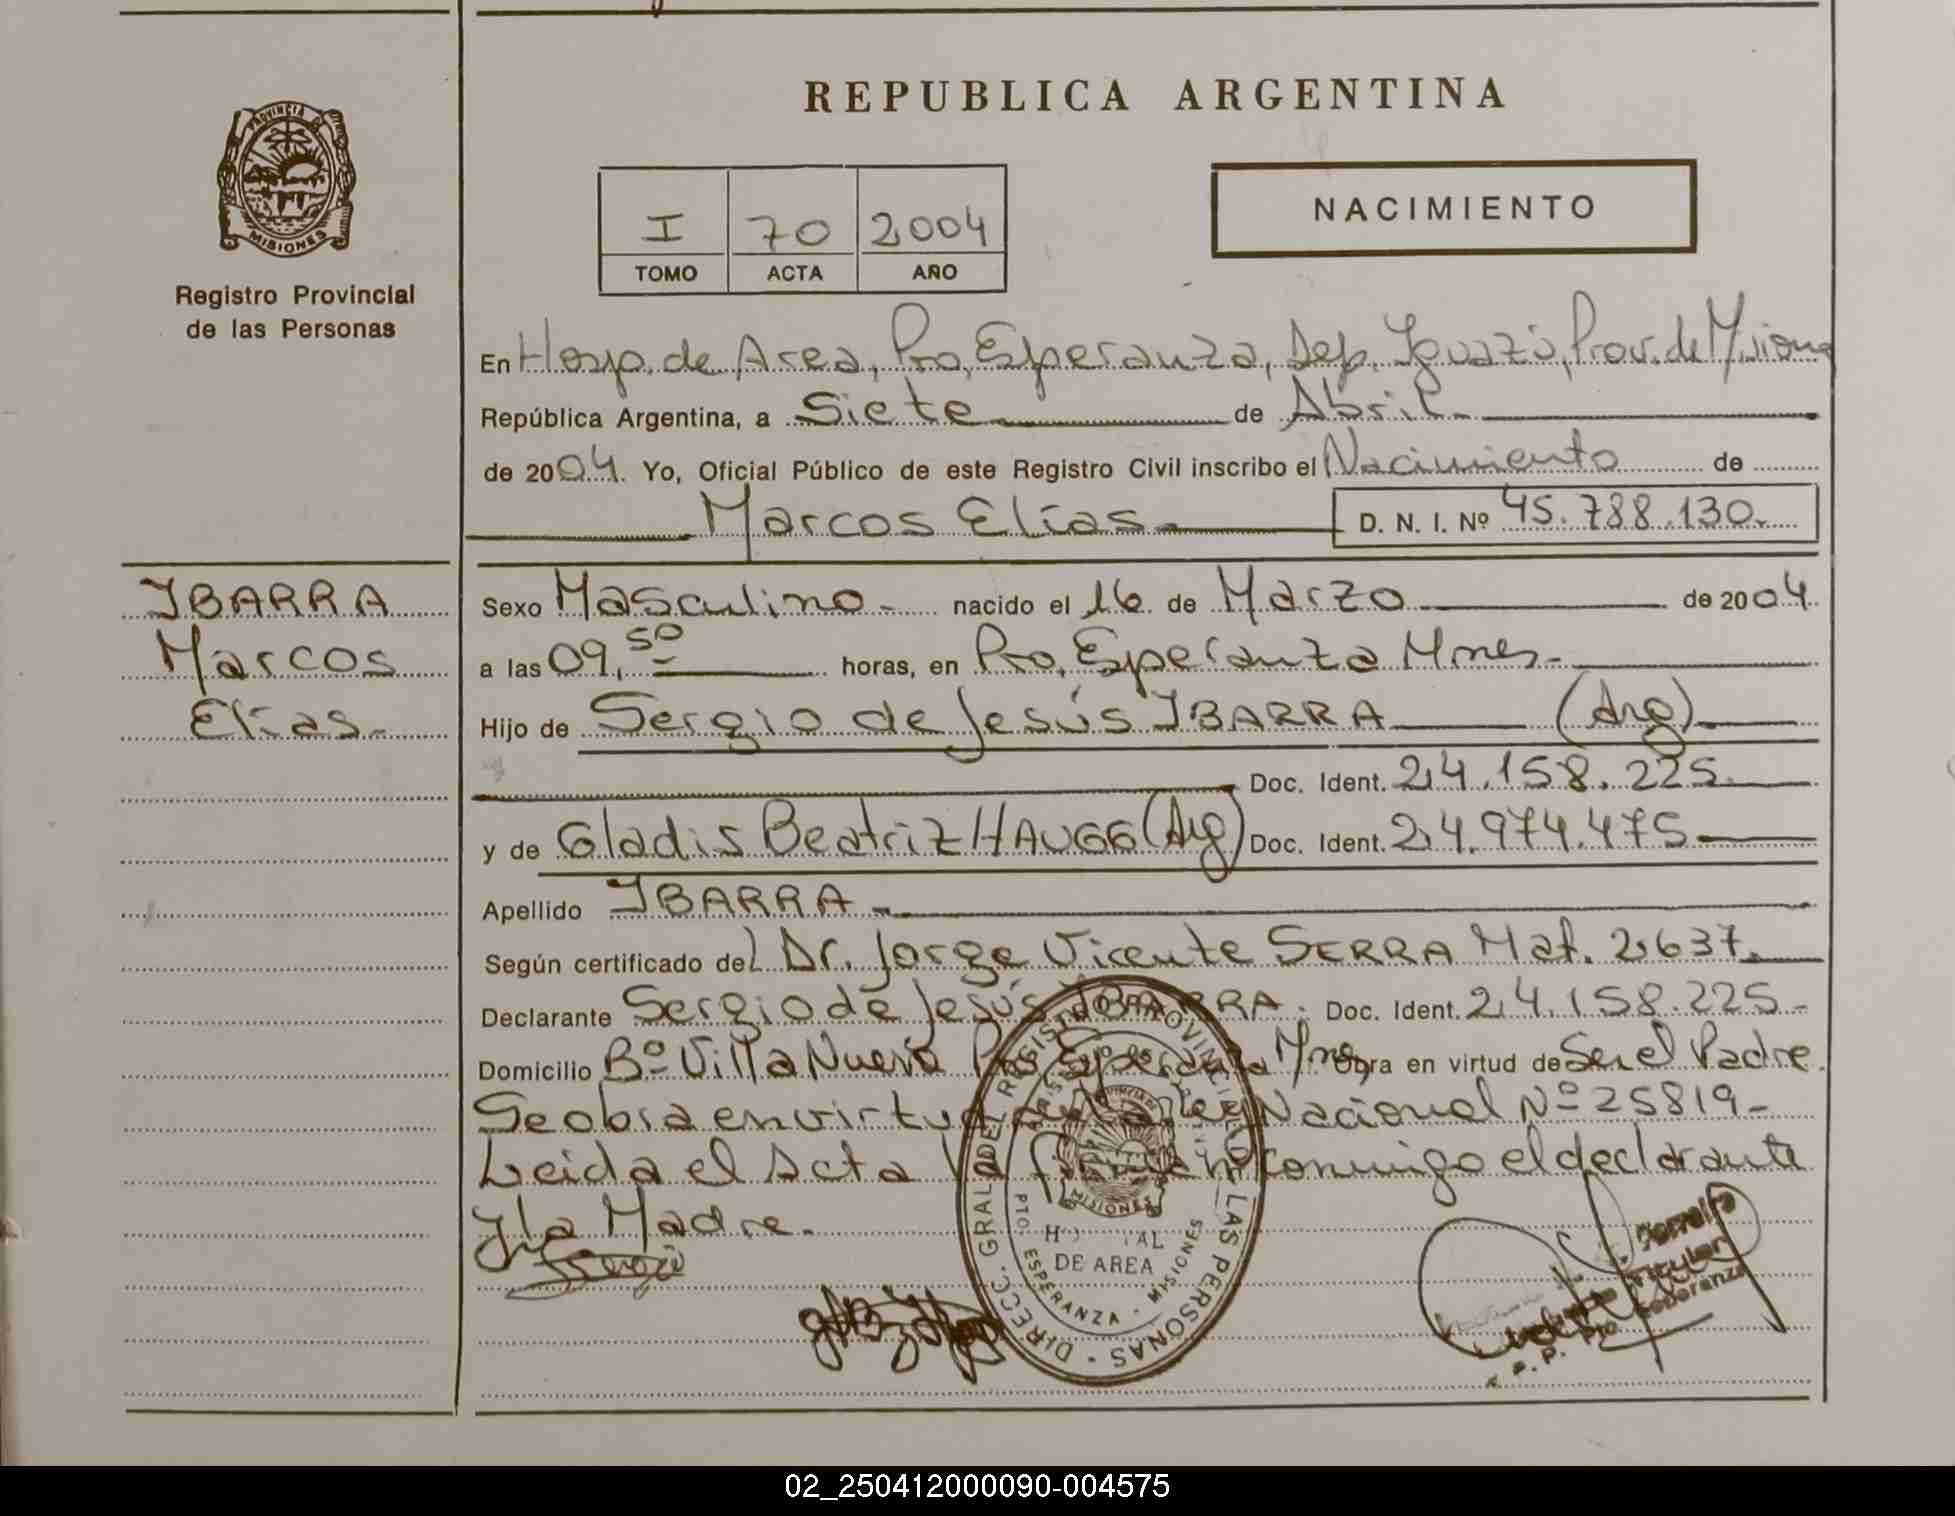 REPUBLICA ARGENTINA
PROVINCIA DE
MISIONES
Registro Provincial
de las Personas
I 70 2004
TOMO ACTA AÑO
NACIMIENTO
En Hosp. de Area, Pto, Esperanza, Dep. Iguazú, Prov. de Misiones
República Argentina, a Siete de Abril.
de 2004. Yo, Oficial Público de este Registro Civil inscribo el Nacimiento de
Marcos Elías
D. N. I. Nº 45.788.130.
IBARRA
Marcos
Elías.
Sexo Masculino nacido el 16 de Marzo de 2004.
a las 09,50 horas, en Pto, Esperanza Mnes.
Hijo de Sergio de Jesús IBARRA (Arg)
Doc. Ident. 24.158.225.
y de Gladis Beatriz HAUGG (Arg) Doc. Ident. 24.974.475
Apellido IBARRA
Según certificado del Dr. Jorge Vicente SERRA Mat. 2637.
Declarante Sergio de Jesús IBARRA. Doc. Ident. 24.158.225.
Domicilio Bº Villa Nueva Pto, Esperanza Mnes Obra en virtud de Ser el Padre.
Se obra en virtud de la Ley Nacional Nº 25819-
Leida el Acta la firman conmigo el declarante
y la Madre.
Sergio
DIRECC. GRAL. DEL REGISTRO PROVINCIAL DE LAS PERSONAS
MISIONES
HOSPITAL
DE AREA
PTO. ESPERANZA - MISIONES
Ferreira
Titular
R. P. Pto Esperanza
02_250412000090-004575